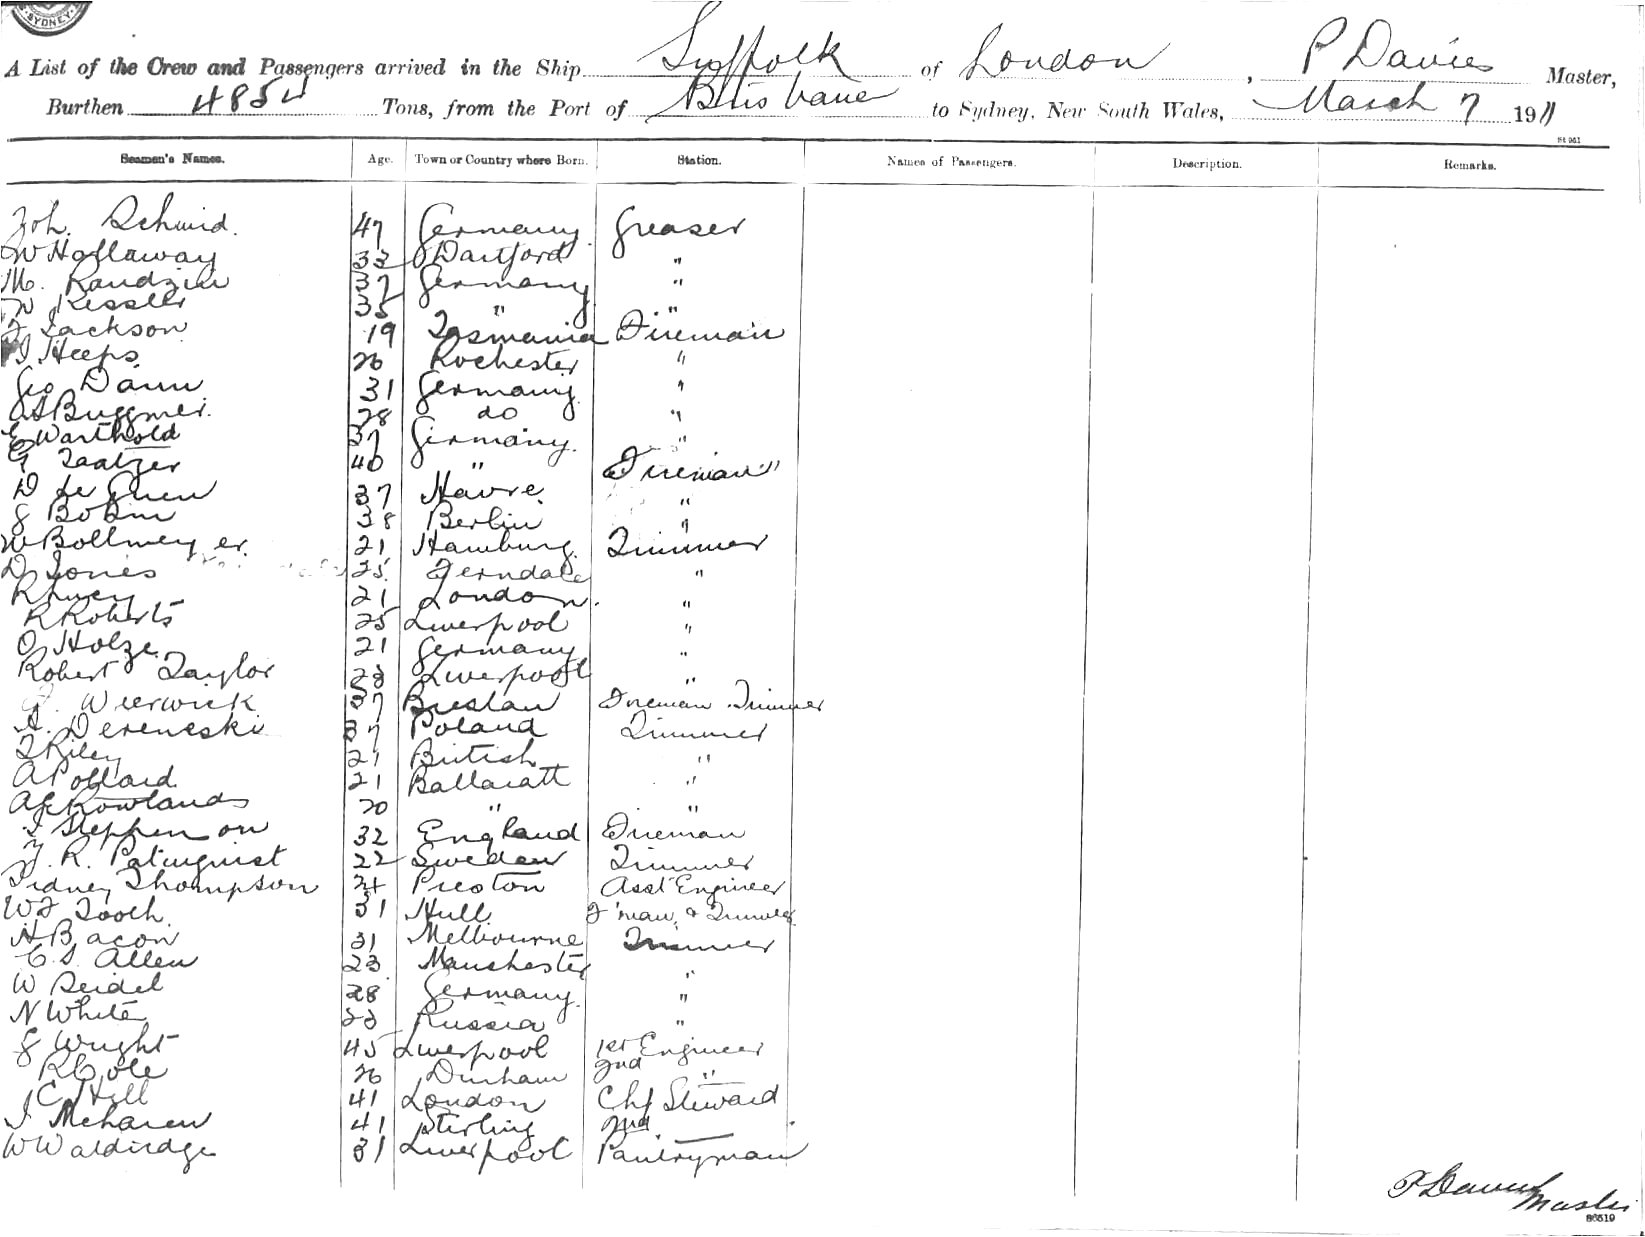 SYDNEY
A List of the Crew and Passengers arrived in the Ship Suffolk of London, P Davies Master,
Burthen 4854 Tons, from the Port of Brisbane to Sydney, New South Wales, March 7 1911
St 961
Seamen's Names. Age. Town or Country where Born. Station. Names of Passengers. Description. Remarks.
Joh. Schmid. 47 Germany Greaser
W Hollaway 33 Dartford "
M. Randzin 37 Germany "
Kessler 35 " "
Jackson 19 Tasmania Fireman
Heeps 26 Rochester "
Geo Dann 31 Germany "
28 do "
E Warthold 37 Germany. "
G 40 " Fireman "
D Le Guen 37 Havre. "
Bohm 38 Berlin "
W Bollmeyer. 21 Hamburg. Trimmer
D Jones 25 Ferndale "
R 21 London. "
R Roberts 25 Liverpool "
O Holze 21 Germany "
Robert Taylor 23 Liverpool "
Weerwick 37 Breslau Fireman Trimmer
37 Poland Trimmer
T Riley 21 British "
A Pollard 21 Ballaratt "
A E Rowlands 20 " "
Stephenson 32 England Fireman
R. Palmquist 22 Sweden Trimmer
Sidney Thompson 24 Preston Asst Engineer
W J Tooth 31 Hull F'man & Trimmer
H Bacon 21 Melbourne Trimmer
C. S. Allen 23 Manchester "
W Seidel 28 Germany "
N White 23 Russia "
J Wright 45 Liverpool 1st Engineer
R Cole 26 Durham 2nd "
J C Hill 41 London Chf Steward
J McLaren 41 Stirling 2nd
W Waldridge 31 Liverpool Pantryman
P Davies Master
86519